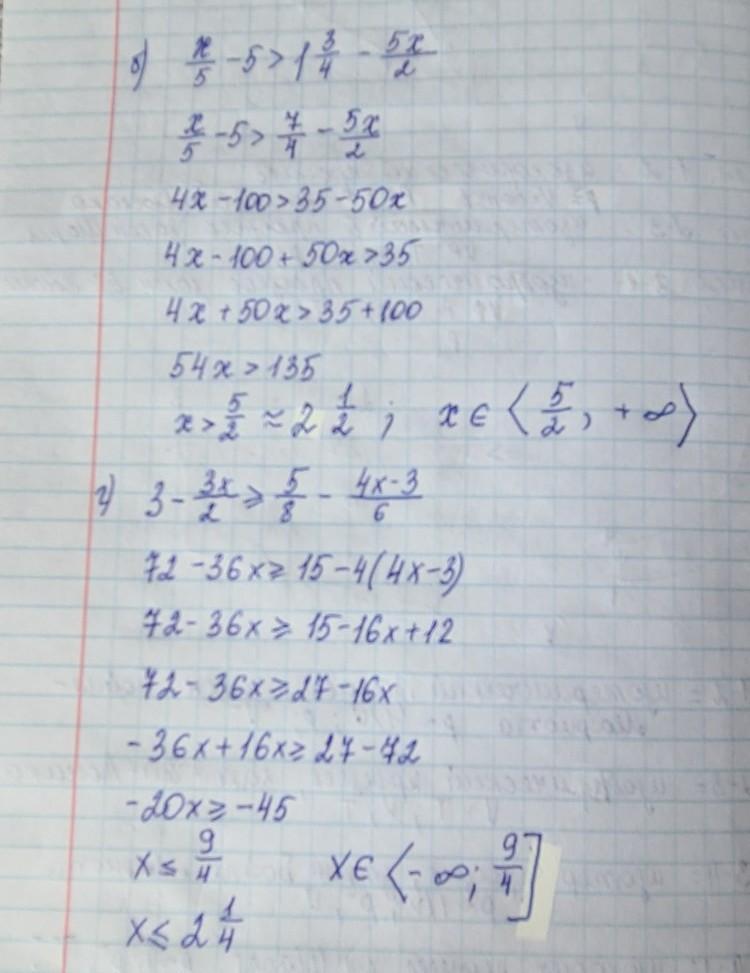 б) x/5 - 5 > 1 3/4 - 5x/2
x/5 - 5 > 7/4 - 5x/2
4x - 100 > 35 - 50x
4x - 100 + 50x > 35
4x + 50x > 35 + 100
54x > 135
x > 5/2 ≈ 2 1/2 ; x ∈ ⟨5/2, +∞⟩
г) 3 - 3x/2 ≥ 5/8 - (4x-3)/6
72 - 36x ≥ 15 - 4(4x-3)
72 - 36x ≥ 15 - 16x + 12
72 - 36x ≥ 27 - 16x
-36x + 16x ≥ 27 - 72
-20x ≥ -45
x ≤ 9/4 x ∈ ⟨-∞; 9/4]
x ≤ 2 1/4